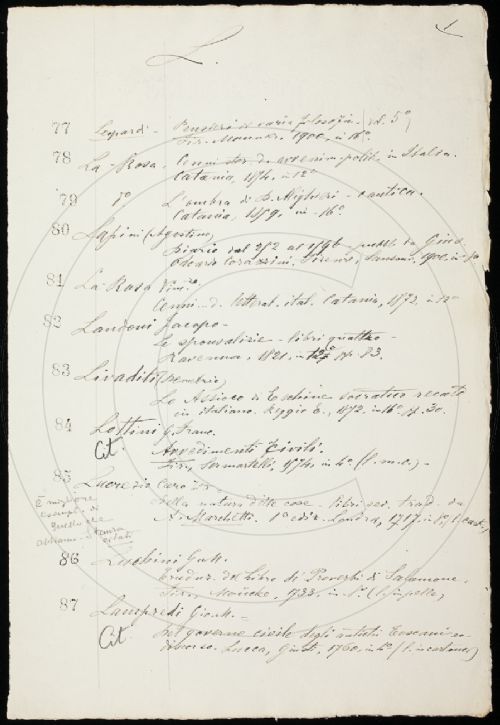 1
L.
77 Leopardi - Pensieri di varia filosofia - vol. 5º
Fir. Monnier, 1900, in 16º.
78 La-Rosa. Cenni stor. di avvenim. polit. in Italia.
Catania, 1874, in 12º
79 Dº L'ombra di B. Miglieri - cantica.
Catania, 1859, in-16º.
80 Lapini (Agostino)
Diario dal 252 al 1596 pubbl. da Gius.
Odoardo Corazzini. Firenze, Sansoni, 1900, in-8º
81 La Rosa
Cenni d. letterat. ital. Catania, 1872, in 12º
82 Landoni Jacopo -
Le sponsalizie - libri quattro -
Ravenna, 1821, in 12º pp. 83.
83 Livaditi (Demetrio)
Lo Assioco di Eschine socratico recato
in italiano. Reggio E., 1872, in 16º pp. 30.
84 Lottini G. Franc.
Cit. Avvedimenti Civili.
Fir., Sermartelli, 1574, in 4º (l. m. c.) -
85 Lucrezio Caro
Della natura delle cose - libri sei. trad. da
A. Marchetti. 1ª ediz. Londra, 1717, in 8º,
È migliore
esempl. di
quello che
abbiamo
citati
86 Luchini
del Libro de Proverbi di Salamone.
Fir., Moücke, 1733, in 8º
87 Lampredi Giov. M. -
Cit. Del governo civile degli antichi Toscani
Lucca, Giusti, 1760, in 4º